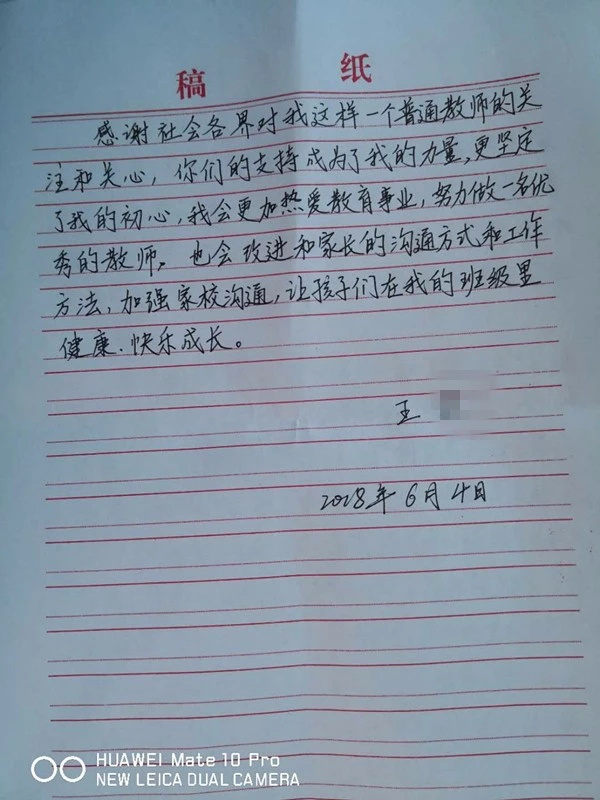 稿 纸
感谢社会各界对我这样一个普通教师的关
注和关心，你们的支持成为了我的力量，更坚定
了我的初心，我会更加热爱教育事业，努力做一名优
秀的教师。也会改进和家长的沟通方式和工作
方法，加强家校沟通，让孩子们在我的班级里
健康、快乐成长。
王
2018年6月4日
HUAWEI Mate 10 Pro
NEW LEICA DUAL CAMERA